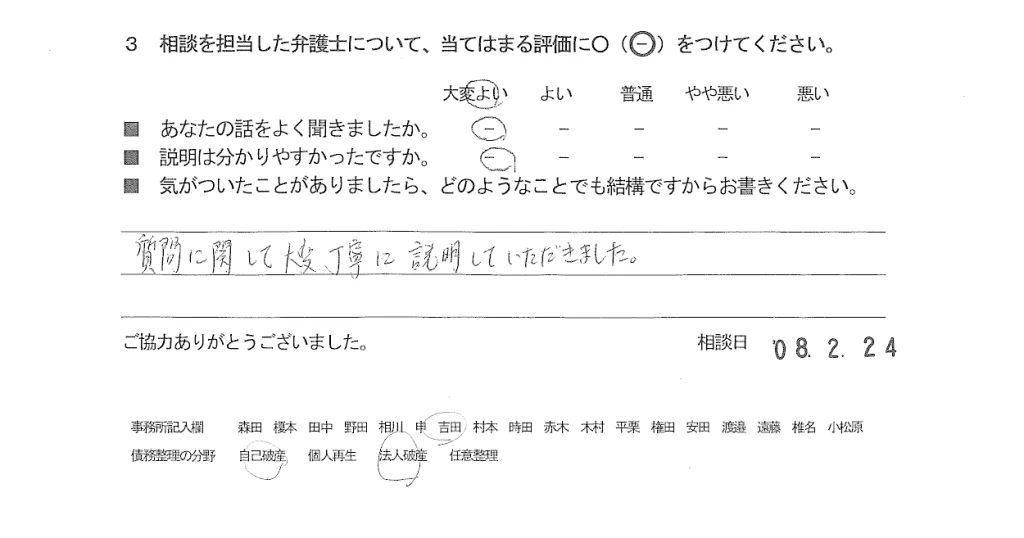 3 相談を担当した弁護士について、当てはまる評価に○(㊀)をつけてください。
大変よい よい 普通 やや悪い 悪い
■ あなたの話をよく聞きましたか。 − − − − −
■ 説明は分かりやすかったですか。 − − − − −
■ 気がついたことがありましたら、どのようなことでも結構ですからお書きください。
質問に関して大変丁寧に説明していただきました。
ご協力ありがとうございました。 相談日 '08. 2. 24
事務所記入欄 森田 榎本 田中 野田 相川 申 吉田 村本 時田 赤木 木村 平栗 権田 安田 渡邉 遠藤 椎名 小松原
債務整理の分野 自己破産 個人再生 法人破産 任意整理